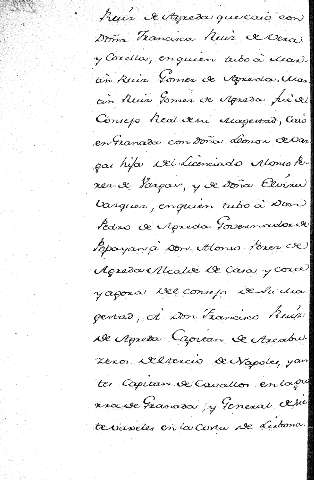 Ruiz de Agreda que casó con
Doña Francisca Ruiz de Vera
y Corella, en quien tubo à Mar-
tin Ruiz Gomez de Agreda. Mar-
tin Ruiz Gomez de Agreda fué del
Consejo Real de su Magestad, casó
en Granada con Doña Leonor de Var-
gas hija del Licenciado Alonso Pe-
rez de Vargas, y de Doña Elvira
Vasquez, en quien tubo à Don
Pedro de Agreda Governador de
Popayan, à Don Alonso Perez de
Agreda Alcalde de Casa y corte
y agora del consejo de Su Ma-
gestad, à Don Francisco Ruiz
de Agreda Capitan de Arcabu-
zeros del tercio de Napoles, y an-
tes Capitan de Cavallos en la gue-
rra de Granada, y General de sie-
te navios en la Costa de Lisboa.